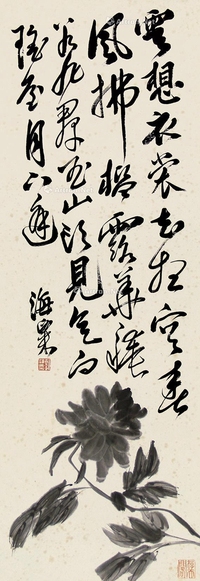 雲想衣裳花想容春
風拂檻露華濃
若非群玉山頭見會向
瑤臺月下逢
海粟